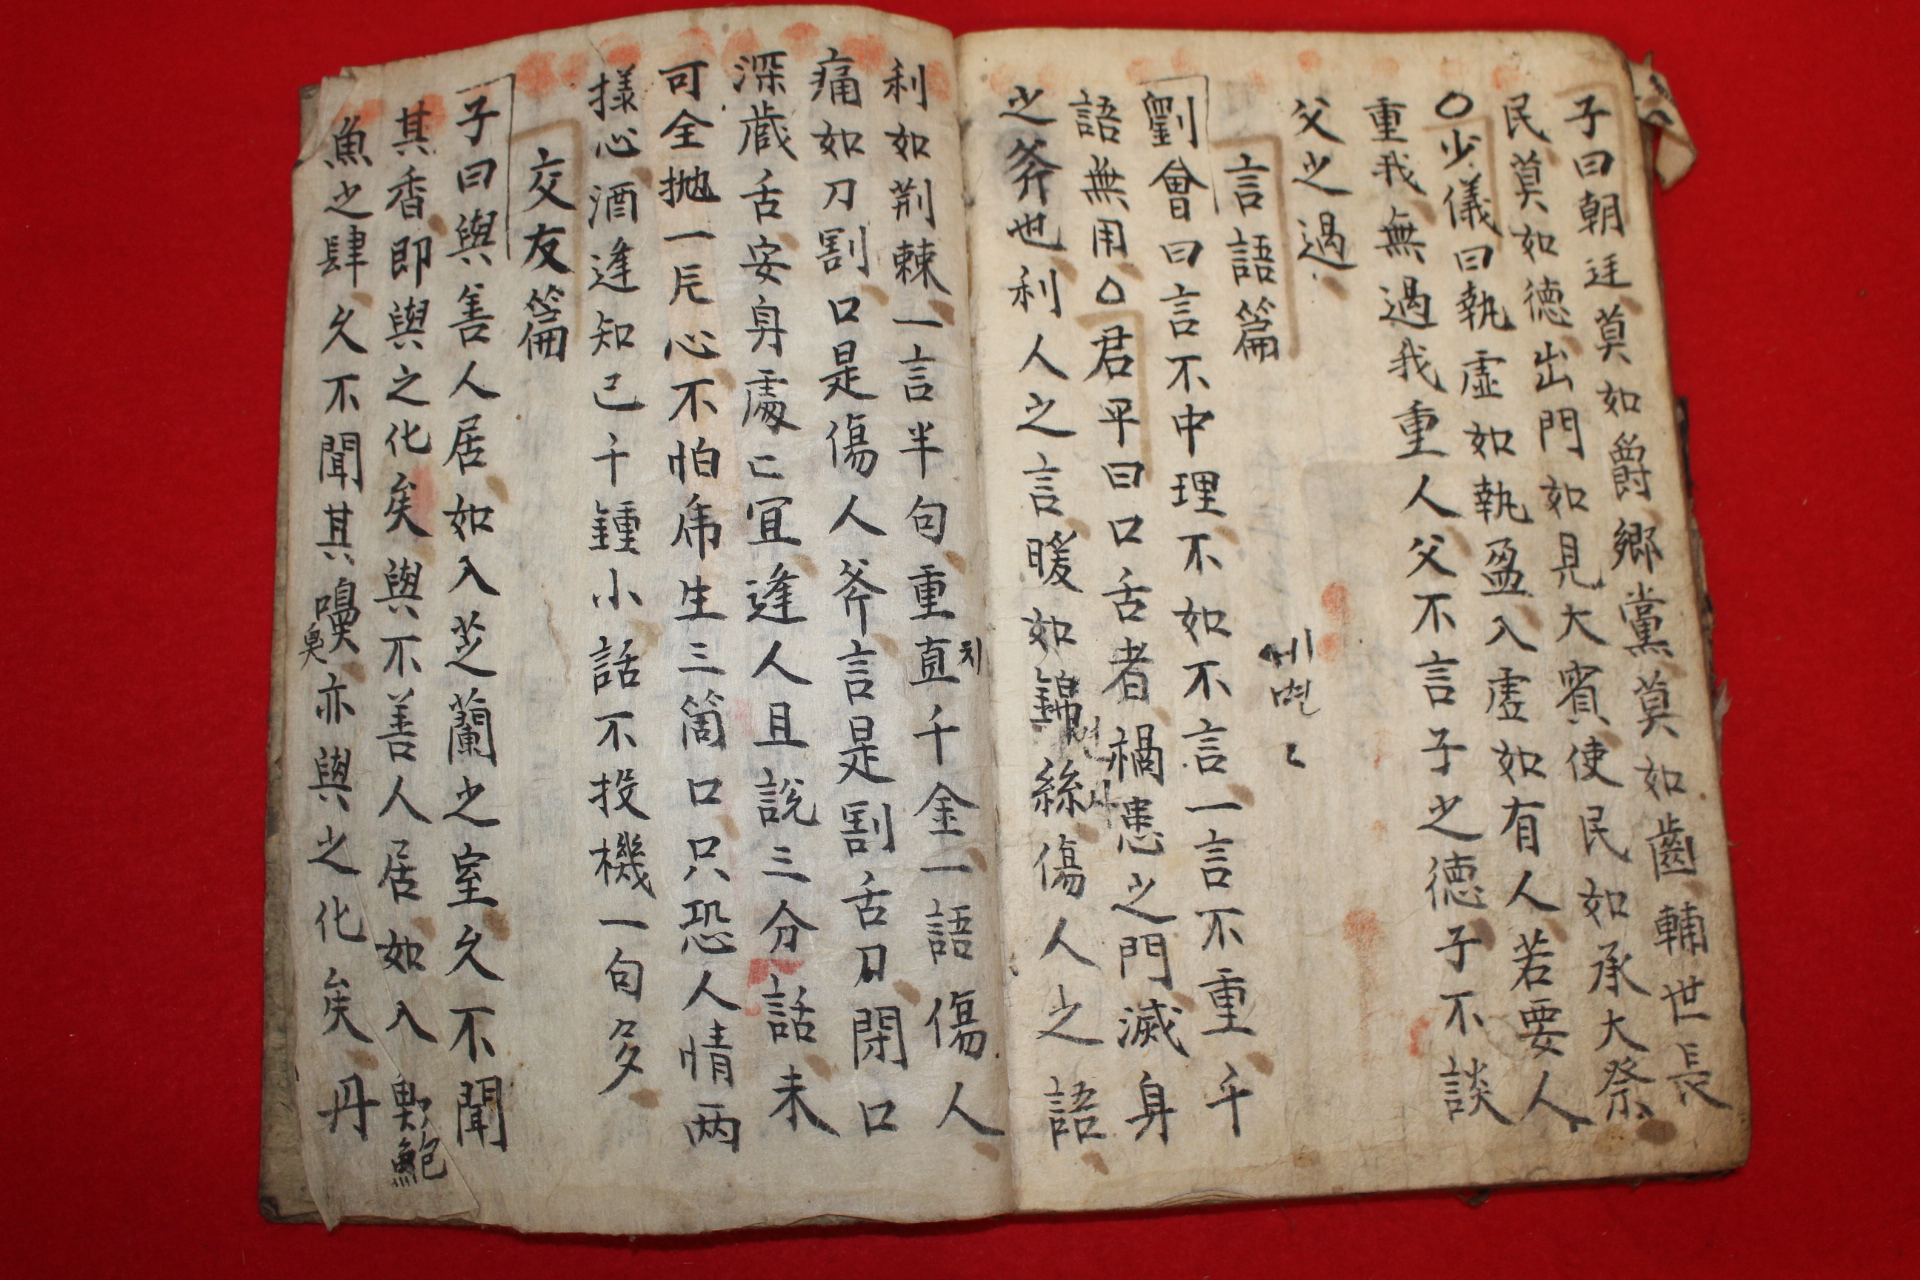 子曰朝廷莫如爵鄉黨莫如齒輔世長
民莫如德出門如見大賓使民如承大祭
○少儀曰執虛如執盈入虛如有人若要人
重我無過我重人父不言子之德子不談
父之過
言語篇
劉會曰言不中理不如不言一言不重千
語無用○君平曰口舌者禍患之門滅身
之斧也利人之言暖如錦絲傷人之語
利如荊棘一言半句重直치千金一語傷人
痛如刀割口是傷人斧言是割舌刀閉口
深藏舌安身處亡宜逢人且說三分話未
可全抛一片心不怕虎生三箇口只恐人情兩
樣心酒逢知己千鍾小話不投機一句多
交友篇
子曰與善人居如入芝蘭之室久不聞
其香即與之化矣與不善人居如入鮑
魚之肆久不聞其嗅臭亦與之化矣丹